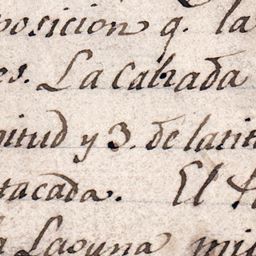 posicion q. la
es. La Calzada
gitud y 3. de latit
tacada. El
a Laguna mi